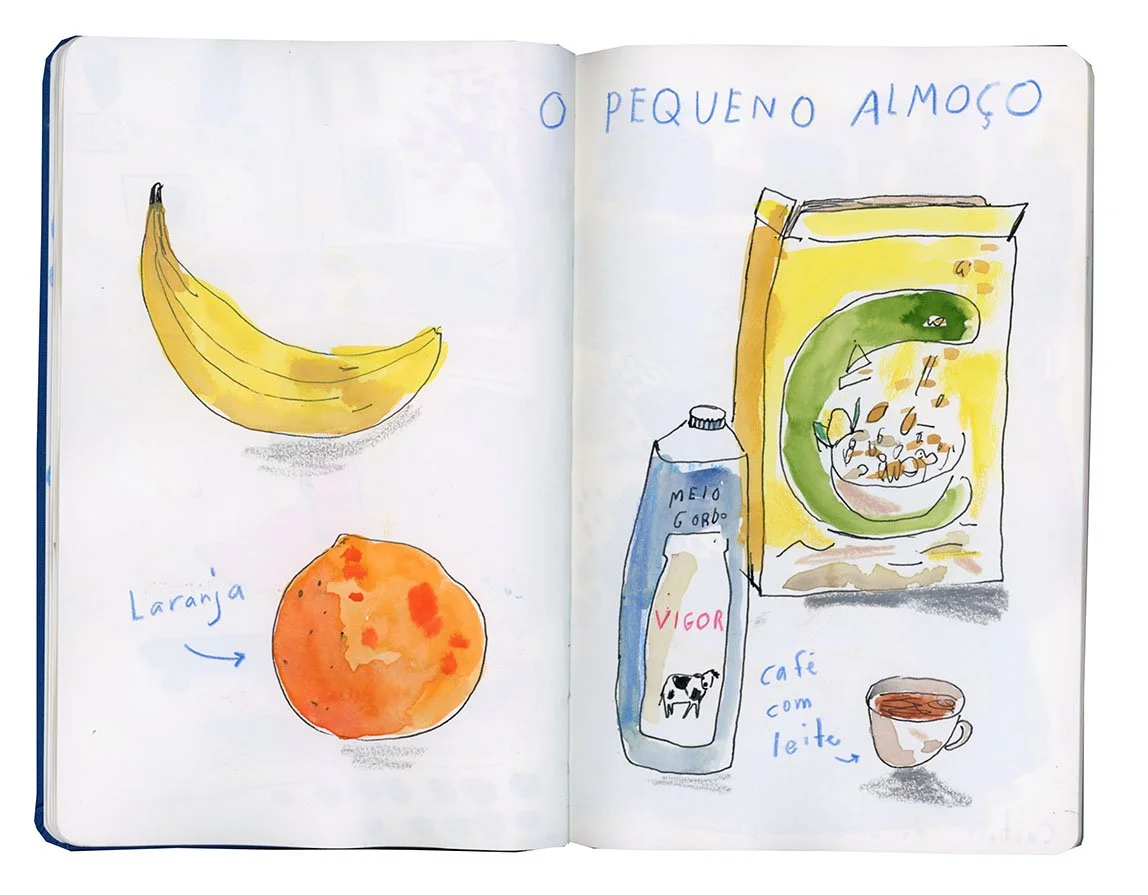 O PEQUENO ALMOÇO
Laranja
MEIO
GORDO
VIGOR
café
com
leite